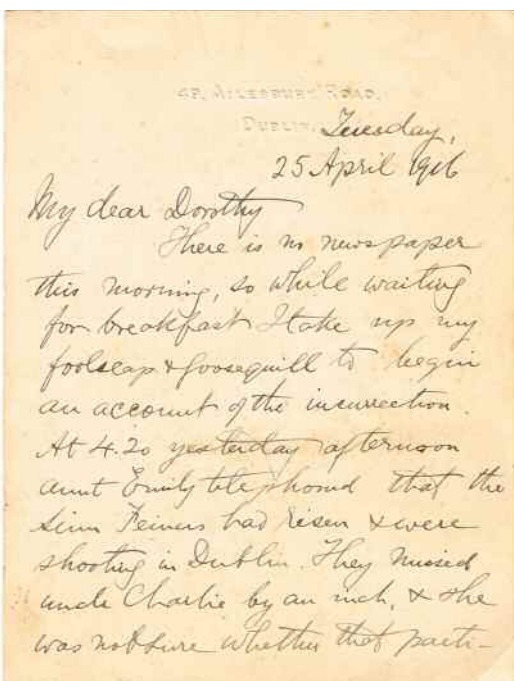 48, AILESBURY ROAD,
DUBLIN. Tuesday,
25 April 1916
My dear Dorothy
There is no newspaper
this morning, so while waiting
for breakfast I take up my
foolscap & goosequill to begin
an account of the insurrection.
At 4.20 yesterday afternoon
aunt Emily telephoned that the
Sinn Feiners had risen & were
shooting in Dublin. They missed
uncle Charlie by an inch, & she
was not sure whether that parti-